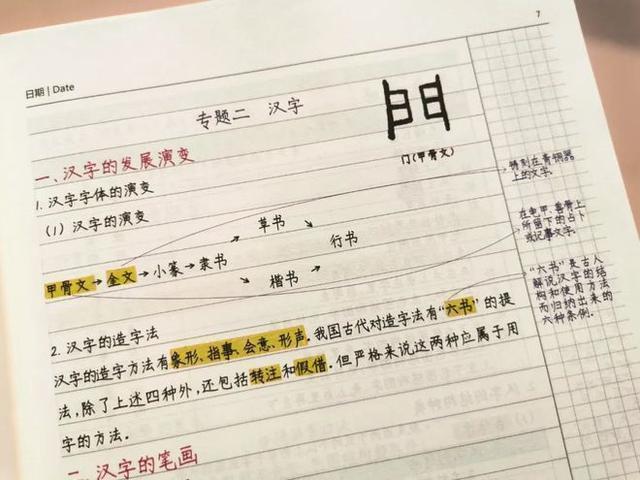 7
日期 | Date
专题二 汉字
门(甲骨文)
一、汉字的发展演变
1. 汉字字体的演变
(1) 汉字的演变
草书
甲骨文→金文→小篆→隶书
行书
楷书
2. 汉字的造字法
汉字的造字方法有象形、指事、会意、形声。我国古代对造字法有“六书”的提
法,除了上述四种外,还包括转注和假借.但严格来说这两种应属于用
字的方法.
二、汉字的笔画
铸刻在青铜器
上的文字.
在龟甲、兽骨上
所留下的占卜
或记事文字.
“六书”是古人
解说汉字的结
构和使用方法
而归纳出来的
六种条例.